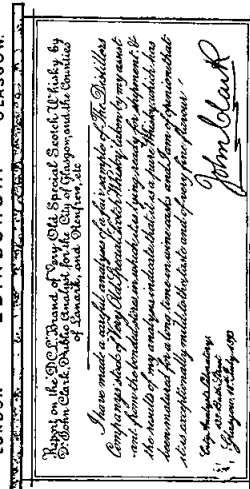 LONDON EDINBURGH GLASGOW.
Report on the D.C.L. Brand of Very Old Special Scotch Whisky by
Dr John Clark, Public Analyst for the City of Glasgow, and the Counties
of Lanark, and Renfrew, etc
I have made a careful analyses of a fair sample of The Distillers
Company's stock of Very Old Special Scotch Whisky, taken by my assist
ant from the bonded stores in which it is lying ready for shipment, &
the results of my analyses indicate that it is a pure Whisky, which has
been matured for a long time on wine casks and I am of opinion that
it is exceptionally mild to the taste and of very fine flavour.
John Clark
City Analyst's Laboratory
Glasgow